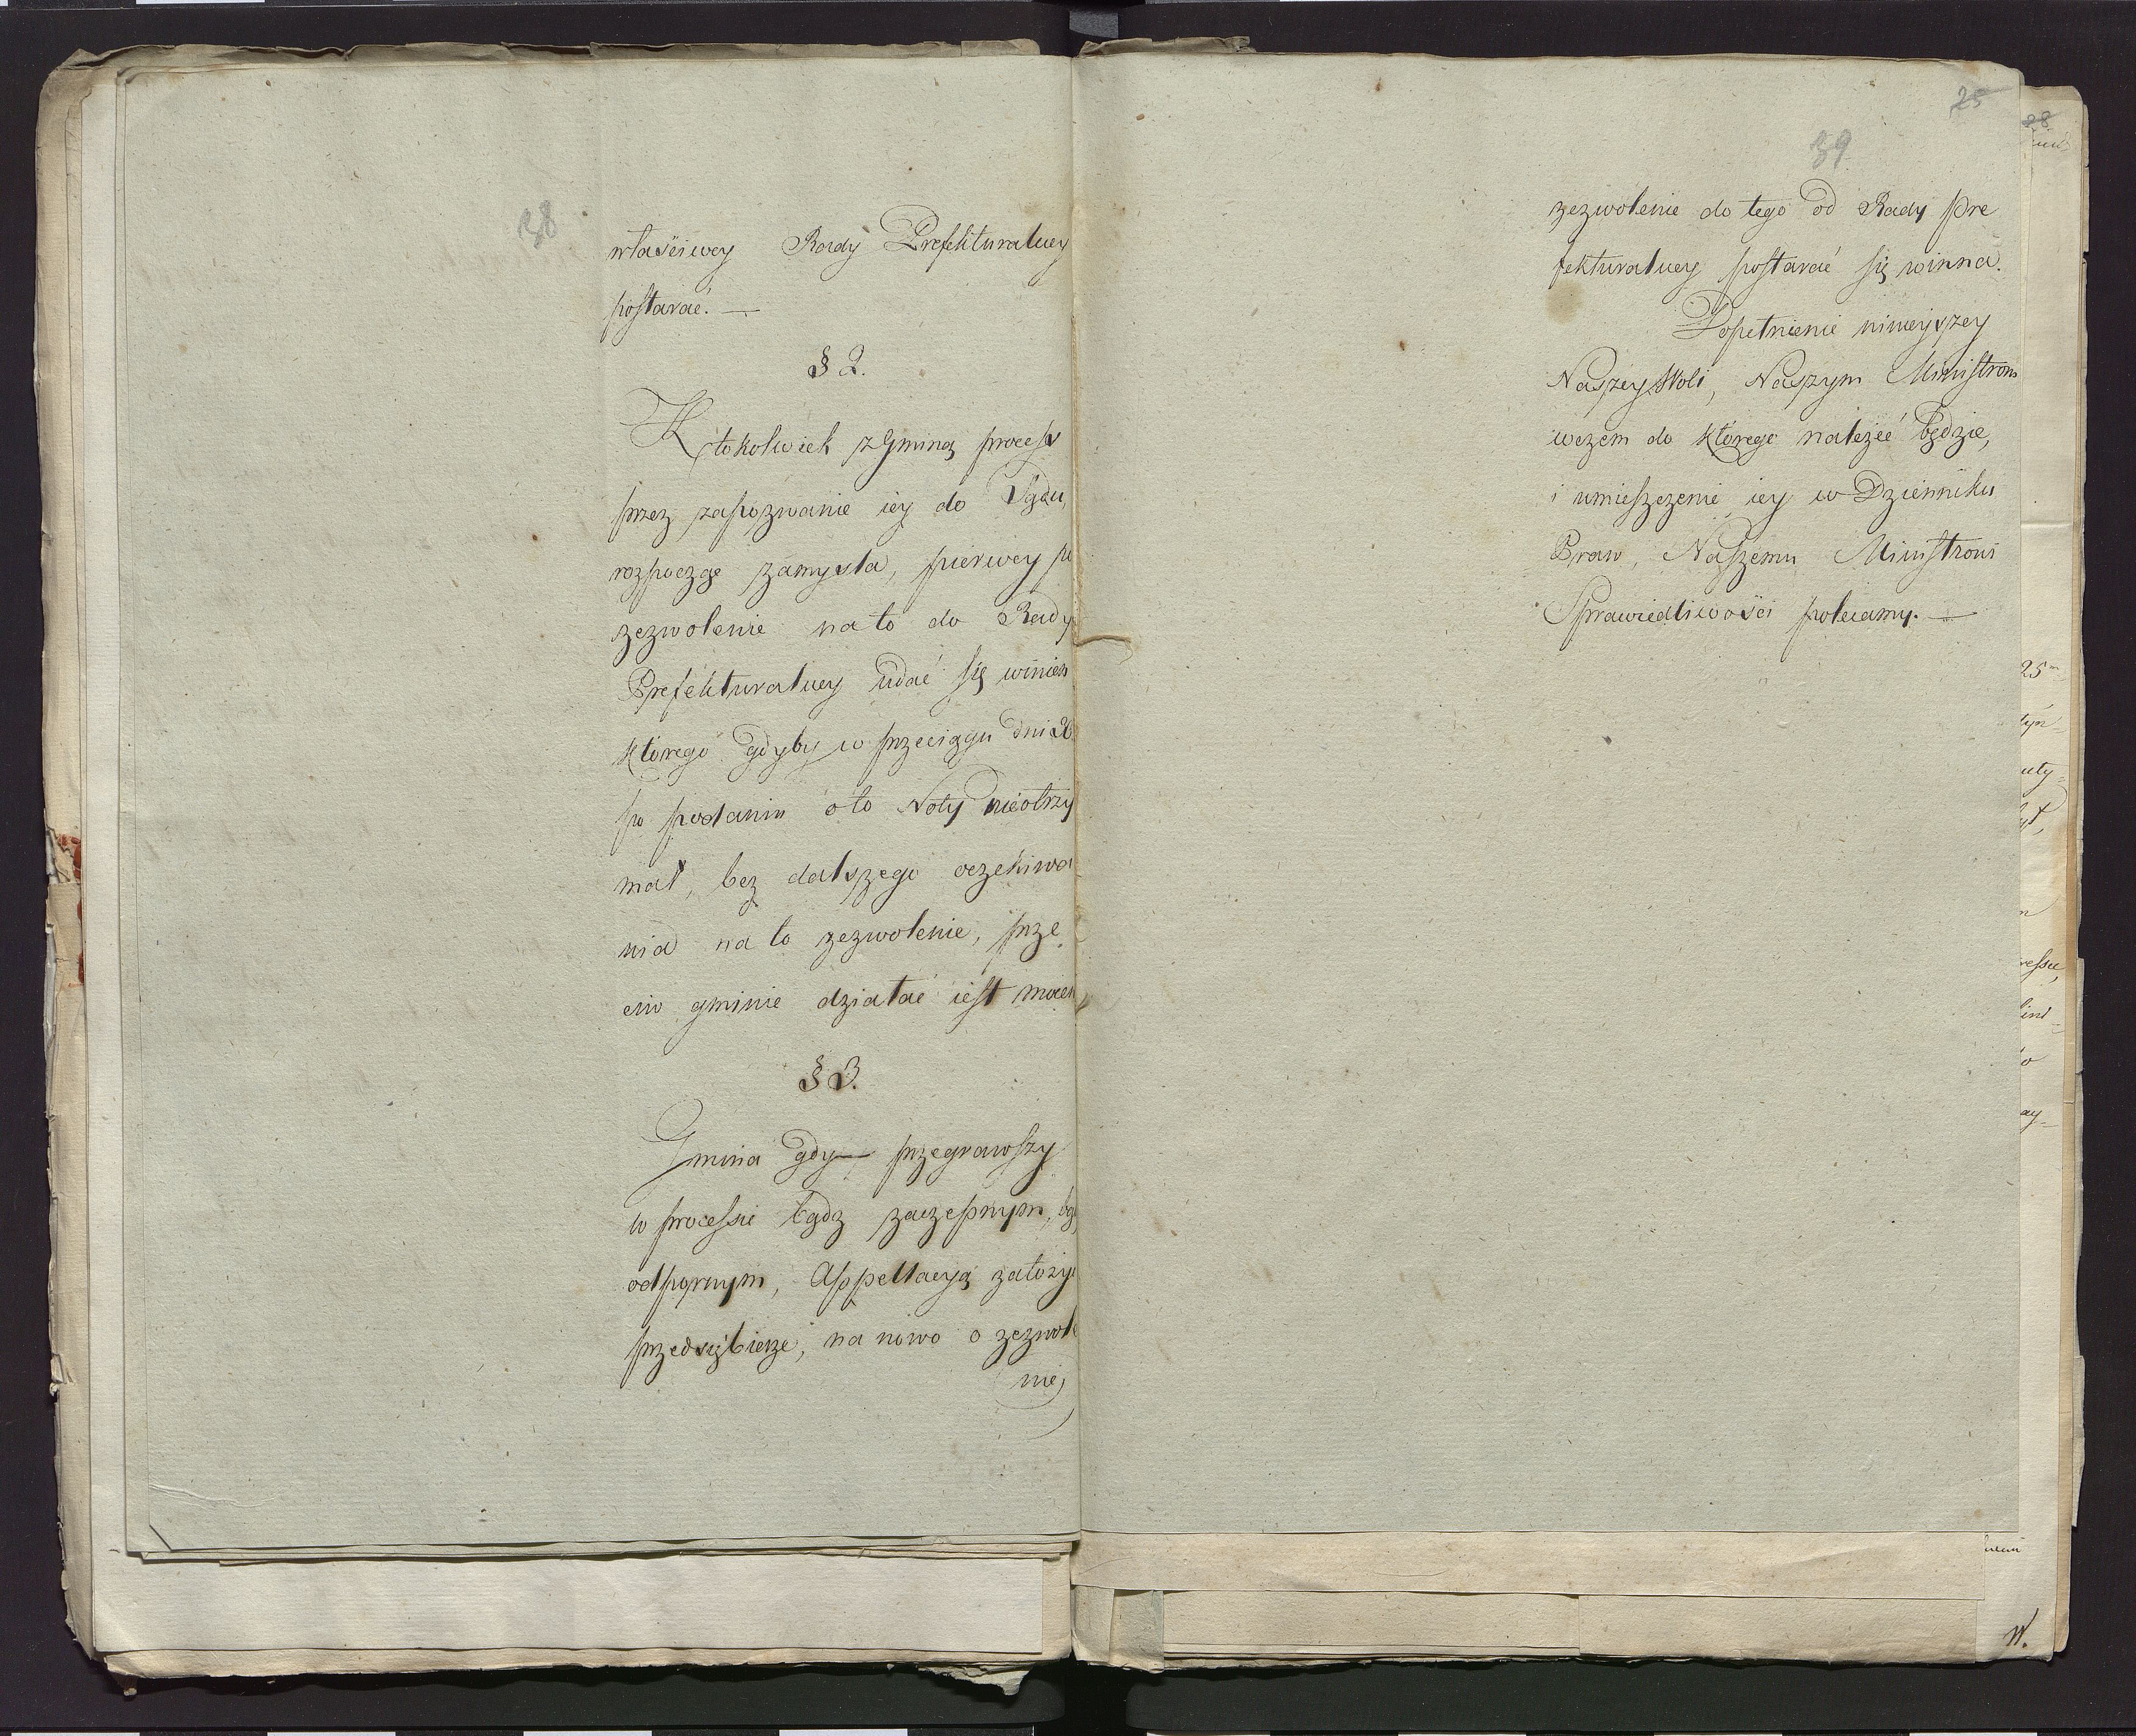 38
właściwey Rady Prefekturalney
postarać. —
§ 2.
Ktokolwiek z Gminą process
przez zapozwanie iey do Sądu,
rozpocząć zamyśla, pierwey po
zezwolenie na to do Rady
Prefekturalney udać się winien
którego gdyby w przeciągu dni 20
po podaniu o to Noty nieotrzy
mał, bez dalszego oczekiwa
nia na to zezwolenie, prze
ciw gminie działać iest mocen
§ 3.
Gmina gdy — przegrawszy
w processie bądz zaczepnym, bą
odpornym, Appellacyą założy
przedsiębierze, na nowo o zezwole
nie
25
39
zezwolenie do tego od Rady Pre
fekturalney postarać się winna.
Dopełnienie ninieyszey
Naszey Woli, Naszym Ministrom
wczem do którego należeć będzie,
i umieszczenie iey w Dzienniku
Praw, Naszemu Ministrowi
Sprawiedliwości polecamy. —
28
25